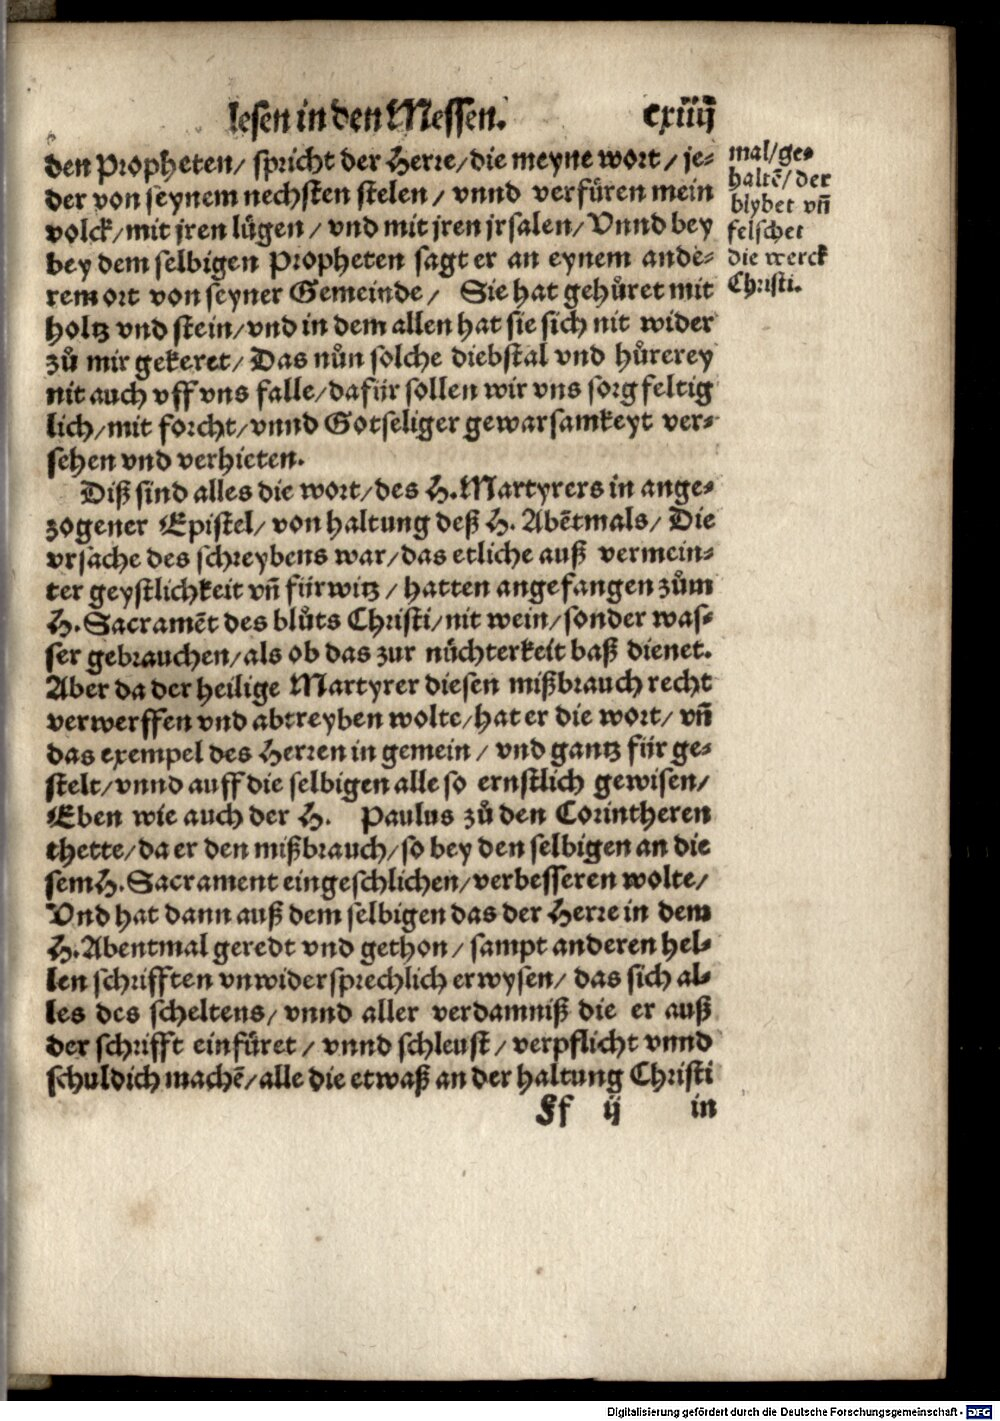 lesen in den Messen. cxiiij
den Propheten/ spricht der Herre/die meyne wort/ je-
der von seynem nechsten stelen/ vnnd verfüren mein
volck/mit jren lügen/ vnd mit jren jrsalen/ Vnnd bey
bey dem selbigen Propheten sagt er an eynem ande-
rem ort von seyner Gemeinde/ Sie hat gehůret mit
holtz vnd stein/vnd in dem allen hat sie sich nit wider
zů mir gekeret/ Das nůn solche diebstal vnd hůrerey
nit auch vff vns falle/dafür sollen wir vns sorgfeltig
lich/mit forcht/vnnd Gotseliger gewarsamkeyt ver-
sehen vnd verhieten.
Diß sind alles die wort/des H. Martyrers in ange-
zogener Epistel/ von haltung deß H. Abētmals/ Die
vrsache des schreybens war/das etliche auß vermein-
ter geystlichkeit vñ fürwitz/ hatten angefangen zům
H. Sacramēt des blůts Christi/nit wein/sonder was-
ser gebrauchen/als ob das zur nůchterkeit baß dienet.
Aber da der heilige Martyrer diesen mißbrauch recht
verwerffen vnd abtreyben wolte/hat er die wort/ vñ
das exempel des Herren in gemein/ vnd gantz für ge-
stelt/vnnd auff die selbigen alle so ernstlich gewisen/
Eben wie auch der H. Paulus zů den Corintheren
thette/da er den mißbrauch/so bey den selbigen an die
sem H. Sacrament eingeschlichen/verbesseren wolte/
Vnd hat dann auß dem selbigen das der Herre in dem
H. Abentmal geredt vnd gethon/ sampt anderen hel-
len schrifften vnwidersprechlich erwysen/ das sich al-
les des scheltens/ vnnd aller verdamniß die er auß
der schrifft einfüret/ vnnd schleust/ verpflicht vnnd
schuldich machē/alle die etwaß an der haltung Christi
Ff ij in
mal/ge-
haltē/der
blybet vñ
felschet
die werck
Christi.
Digitalisierung gefördert durch die Deutsche Forschungsgemeinschaft - DFG